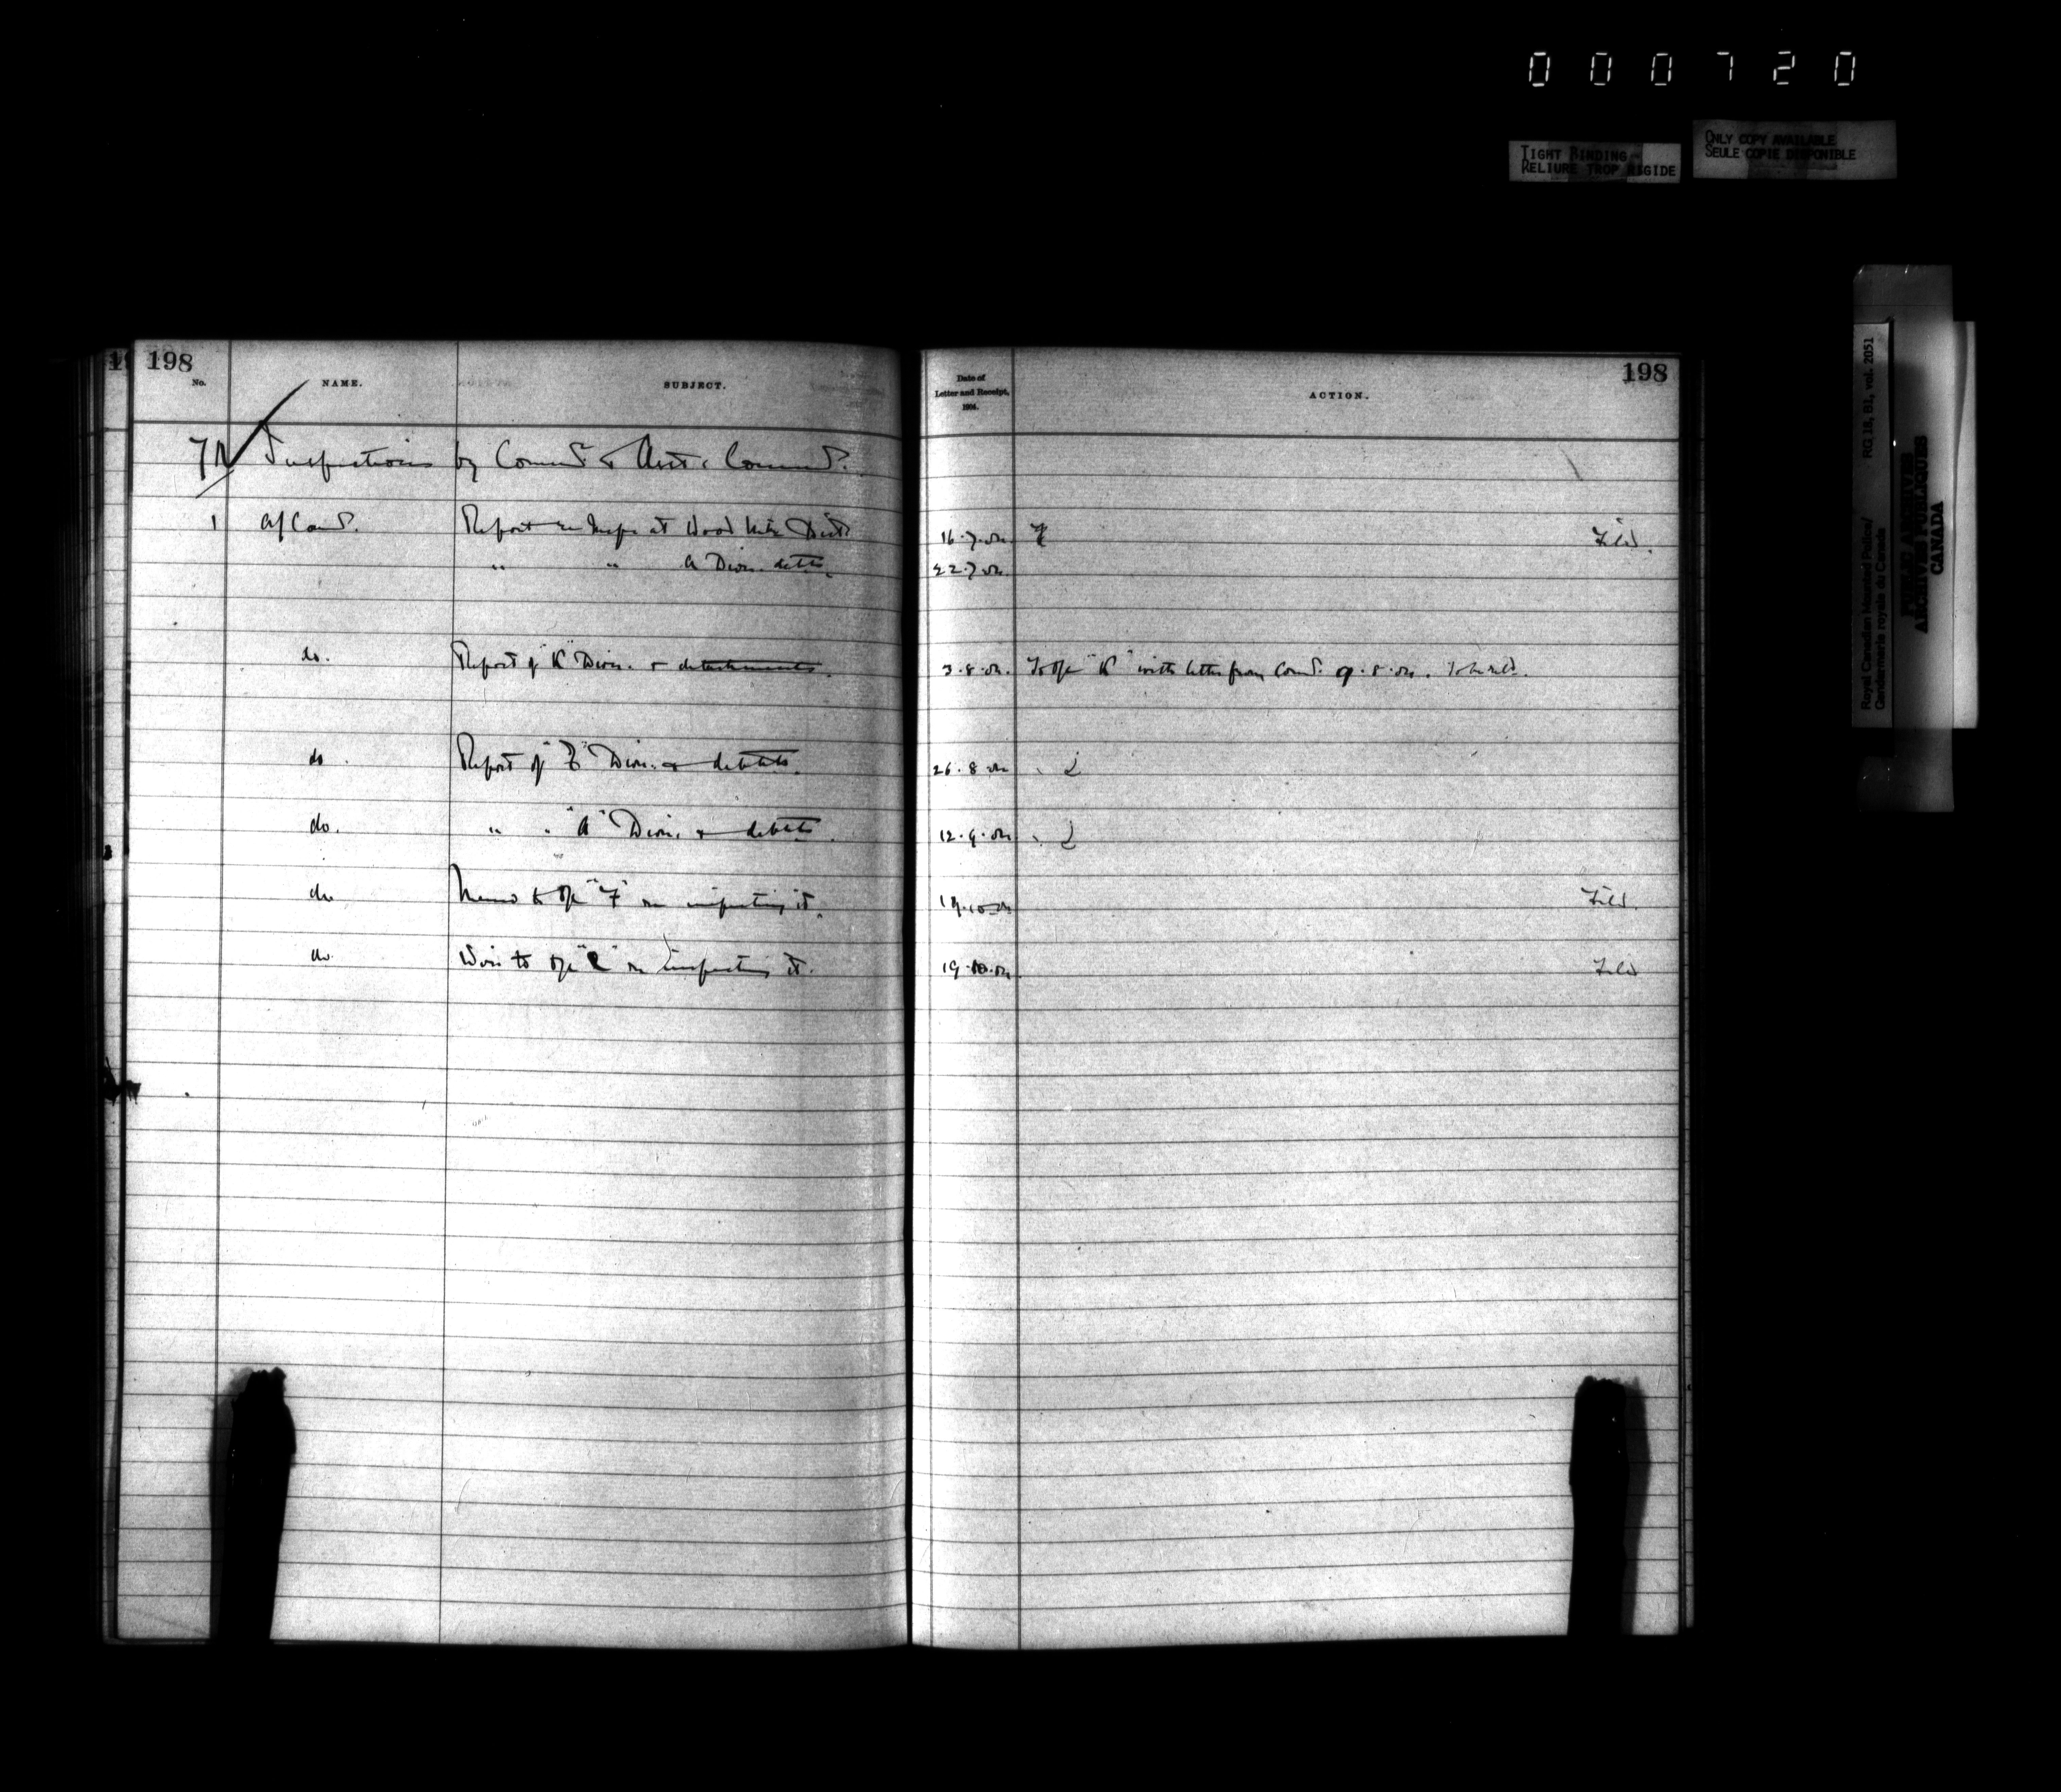 000720
TIGHT BINDING
RELIURE TROP RIGIDE
ONLY COPY AVAILABLE
SEULE COPIE DISPONIBLE
Royal Canadian Mounted Police/
Gendarmerie royale du Canada
RG 18, B1, vol. 2051
PUBLIC ARCHIVES
ARCHIVES PUBLIQUES
CANADA
198
198
No. NAME. SUBJECT. Date of Letter and Receipt, 1904. ACTION.
Inspections by Commr. & Asst. Commr.
1 A/Comr. Report re Inspn at Wood Mtn Distt 16.7.04 Filed.
" " A Divn. detts. 22.7.04
do. Report of "K" Divn. & detachments. 3.8.04. To O/C "K" with letter from Comr. 9.8.04.
do. Report of Divn. & detchts. 26.8.04
do. " " "A" Divn. & detchts. 12.9.04
do Memo to O/C "F" re inspecting it. 19.10.04 Filed.
do Wire to O/C "C" re inspecting it. 19.10.04. Filed